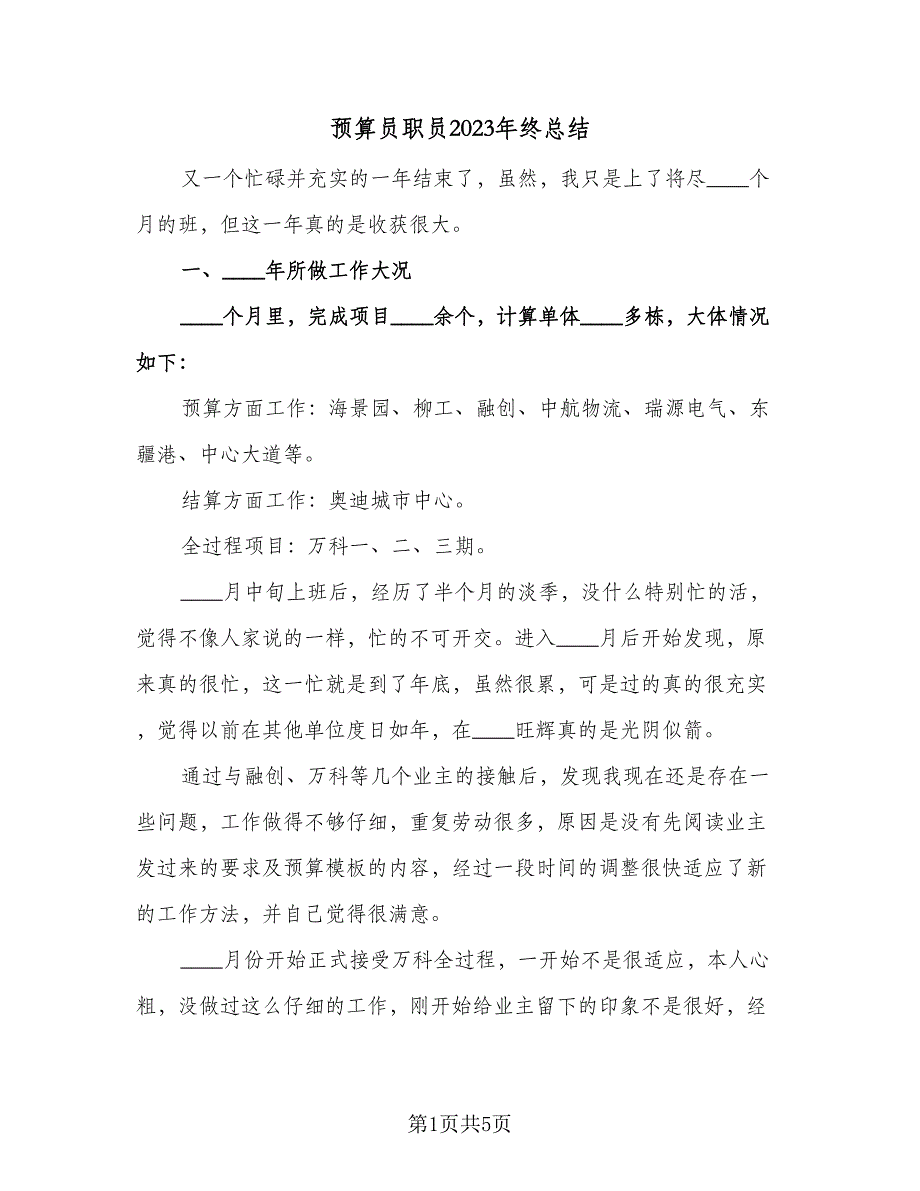 预算员职员2023年终总结
又一个忙碌并充实的一年结束了，虽然，我只是上了将尽____个
月的班，但这一年真的是收获很大。
一、____年所做工作大况
____个月里，完成项目____余个，计算单体____多栋，大体情况
如下：
预算方面工作：海景园、柳工、融创、中航物流、瑞源电气、东
疆港、中心大道等。
结算方面工作：奥迪城市中心。
全过程项目：万科一、二、三期。
____月中旬上班后，经历了半个月的淡季，没什么特别忙的活，
觉得不像人家说的一样，忙的不可开交。进入____月后开始发现，原
来真的很忙，这一忙就是到了年底，虽然很累，可是过的真的很充实
，觉得以前在其他单位度日如年，在____旺辉真的是光阴似箭。
通过与融创、万科等几个业主的接触后，发现我现在还是存在一
些问题，工作做得不够仔细，重复劳动很多，原因是没有先阅读业主
发过来的要求及预算模板的内容，经过一段时间的调整很快适应了新
的工作方法，并自己觉得很满意。
____月份开始正式接受万科全过程，一开始不是很适应，本人心
粗，没做过这么仔细的工作，刚开始给业主留下的印象不是很好，经
第1页共5页